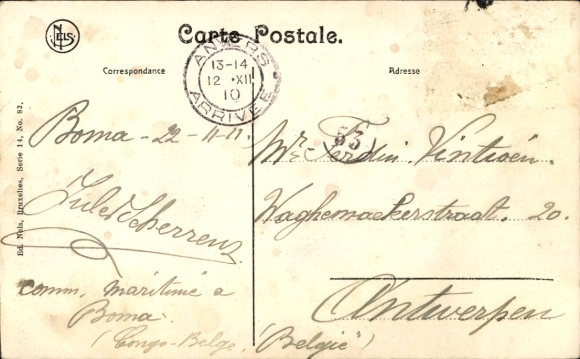 NELS
Carte Postale.
Correspondance
Adresse
ANVERS
13-14
12 XII
10
ARRIVÉE
Ed. Nels, Bruxelles, Serie 14, No. 83.
Boma - 22 - 11 - 11.
Jules Scherrens
comm. maritime a
Boma.
(Congo-Belge.
53
Mr Ferdin Vintioën.
Waghemaekerstraat. 20.
Antwerpen
"België")